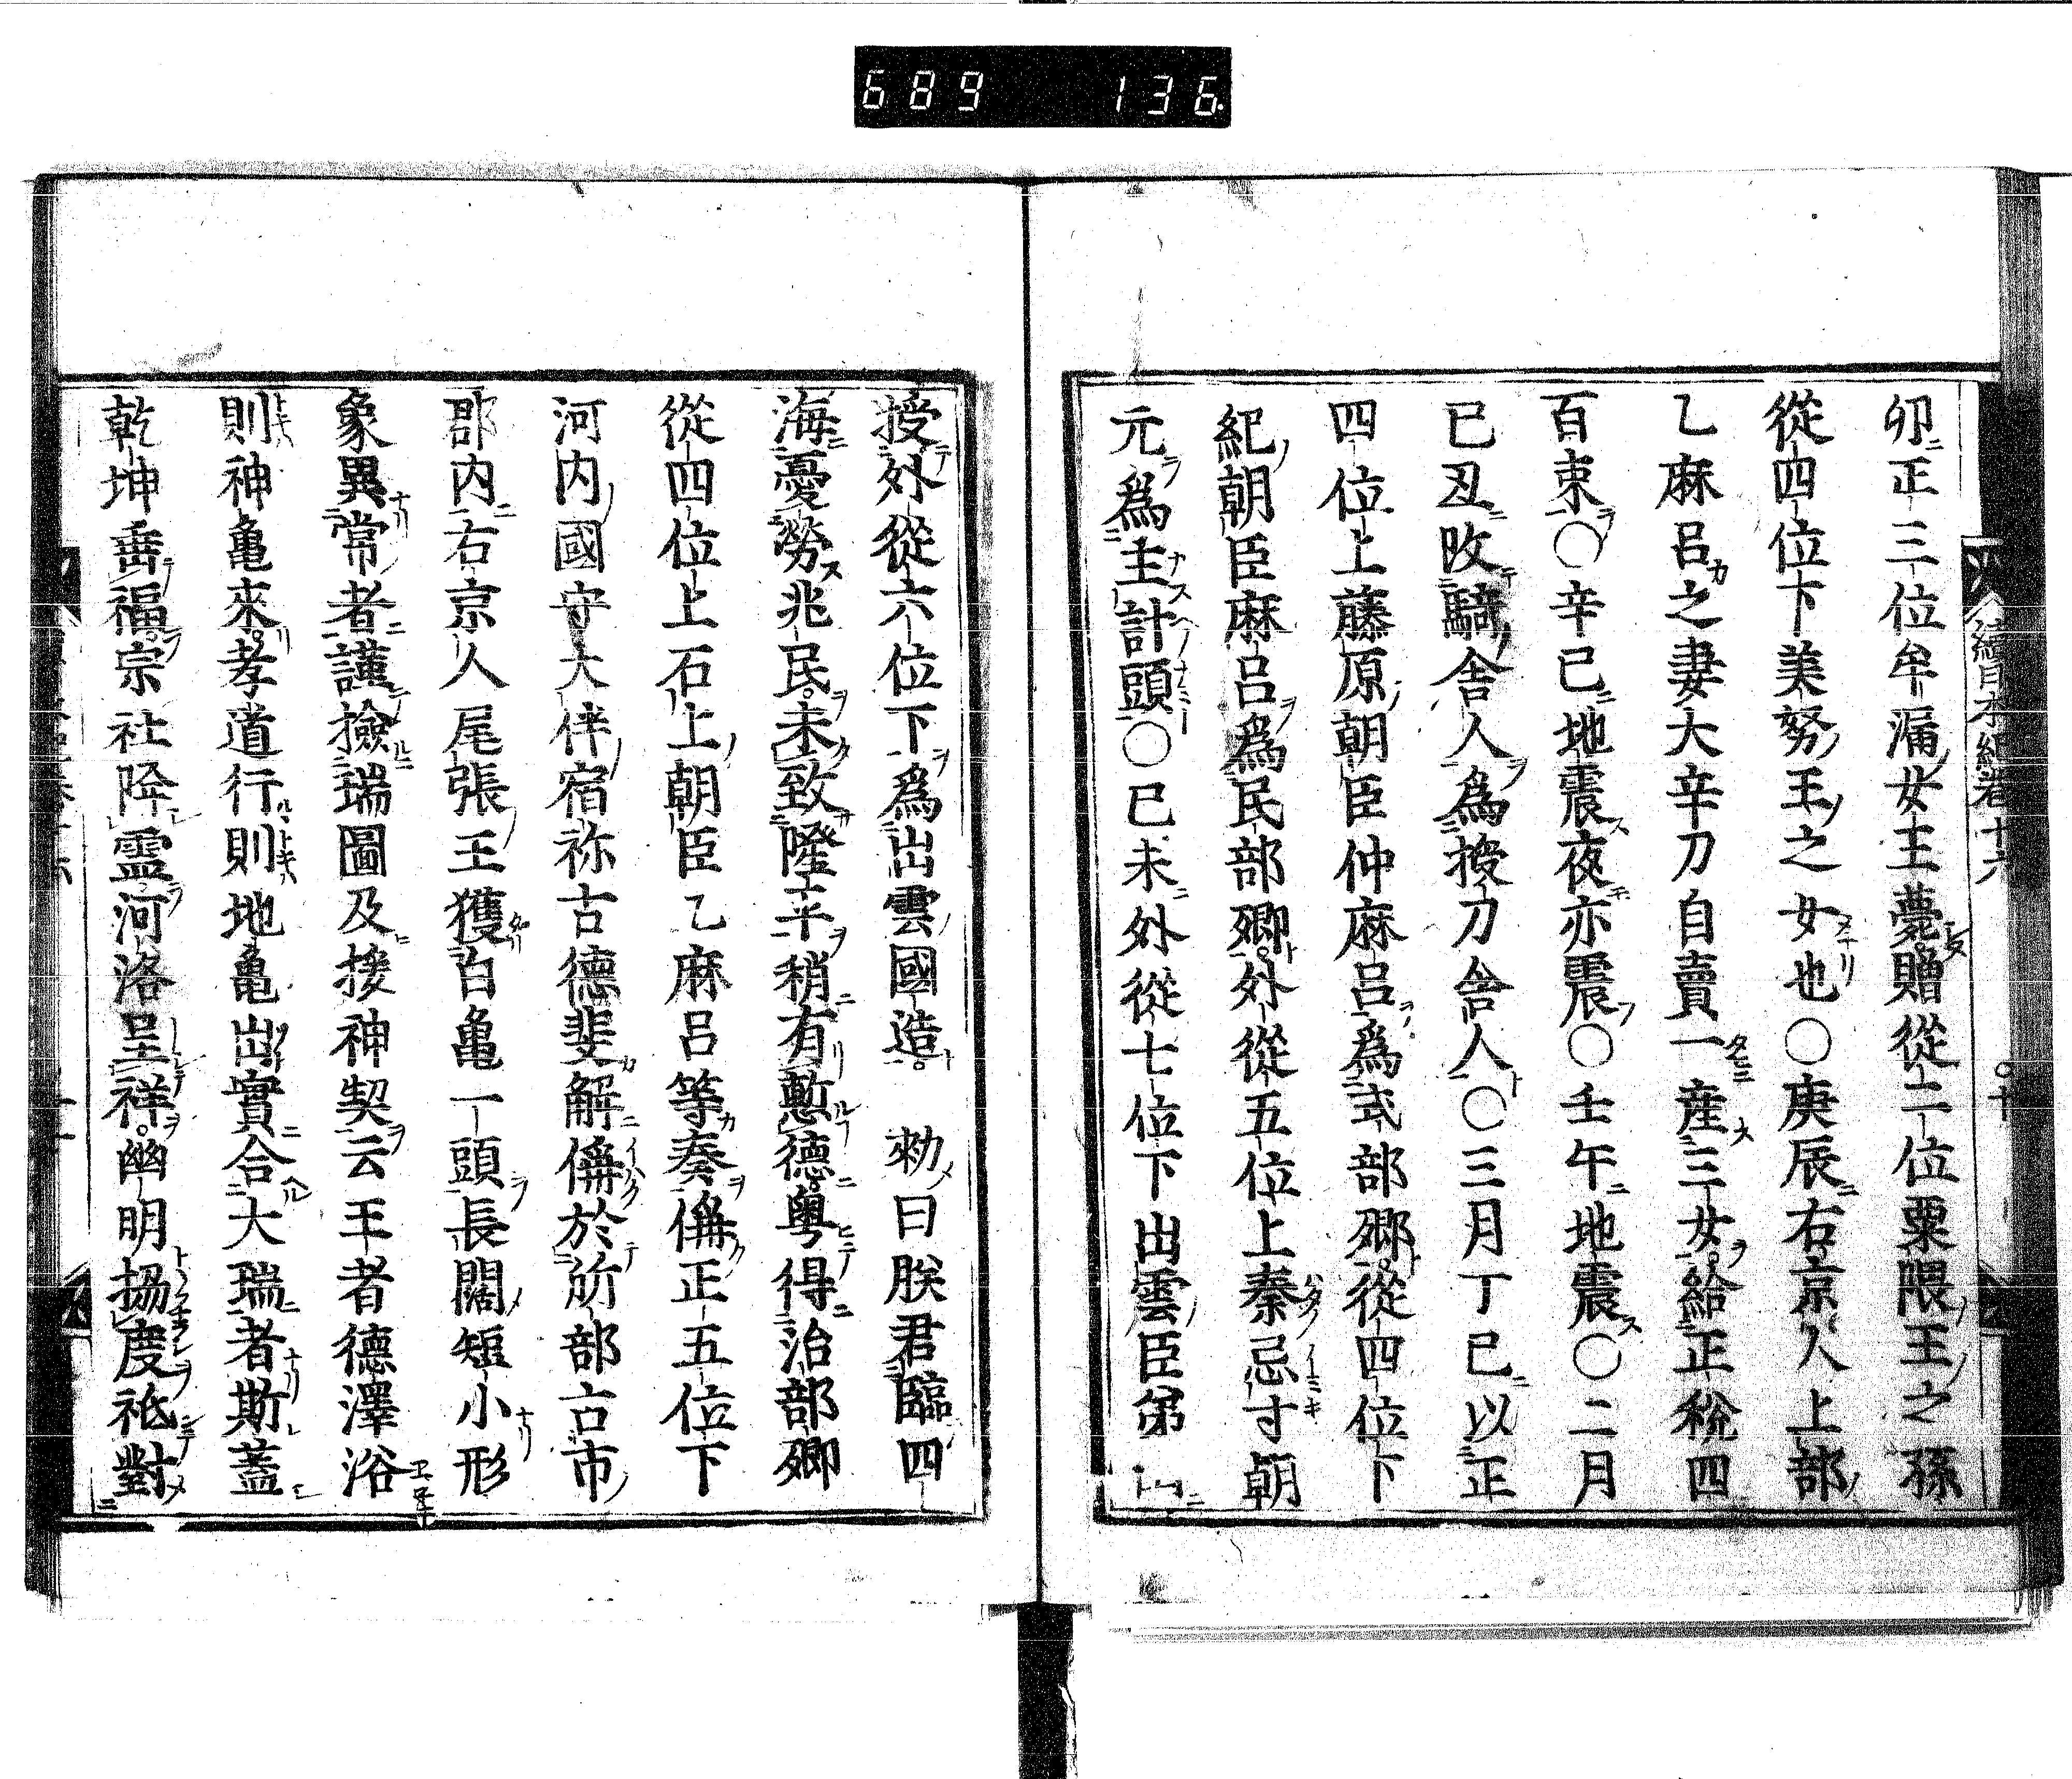 689 136
續日本紀卷十六 ○十
卯正三位牟漏女王薨贈從二位栗隈王之孫
從四位下美努王之女也○庚辰右京人上部
乙麻呂之妻大辛刀自賣一産三女給正税四
百束○辛巳地震夜亦震○壬午地震○二月
己丑改騎舎人為授刀舎人○三月丁巳以正
四位上藤原朝臣仲麻呂為式部卿從四位下
紀朝臣麻呂為民部卿外從五位上秦忌寸朝
元為主計頭○己未外從七位下出雲臣弟山
授外從六位下為出雲國造 勑曰朕君臨四
海憂勞兆民未致隆平稍有慙德粤得治部卿
從四位上石上朝臣乙麻呂等奏偁正五位下
河内國守大伴宿祢古德斐解偁於所部古市
郡内右京人尾張王獲白亀一頭長闊短小形
象異常者謹撿瑞圖及援神契云王者德澤浴
則神亀來孝道行則地亀出實合大瑞者斯蓋
乾坤垂福宗社降靈河洛呈祥幽明揚度祗對